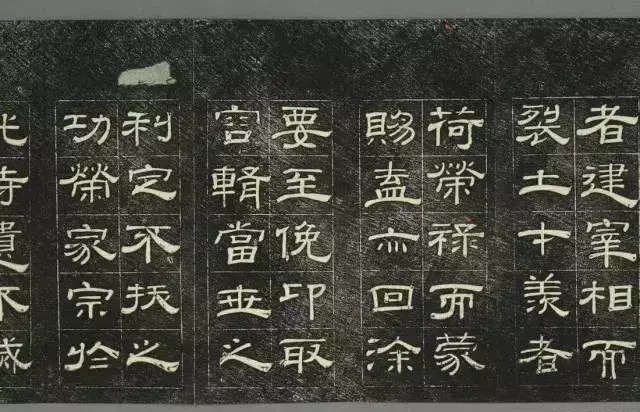 者建宰相而
裂土才羡者
荷榮祿而蒙
賜盍亦回涂
要至俛卬取
容輯當世之
利定不拔之
功榮家宗於
遺不